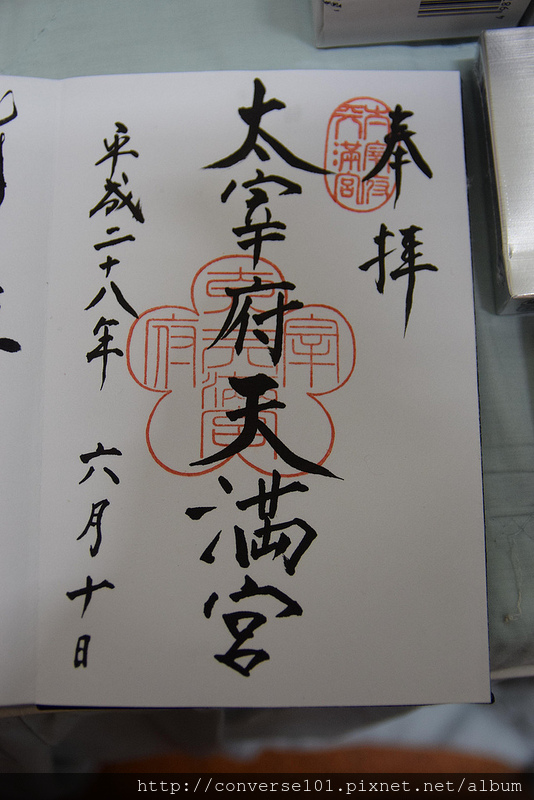 奉拝
太宰府天満宮
平成二十八年 六月十日
太宰府天満宮
http://converse101.pixnet.net/album